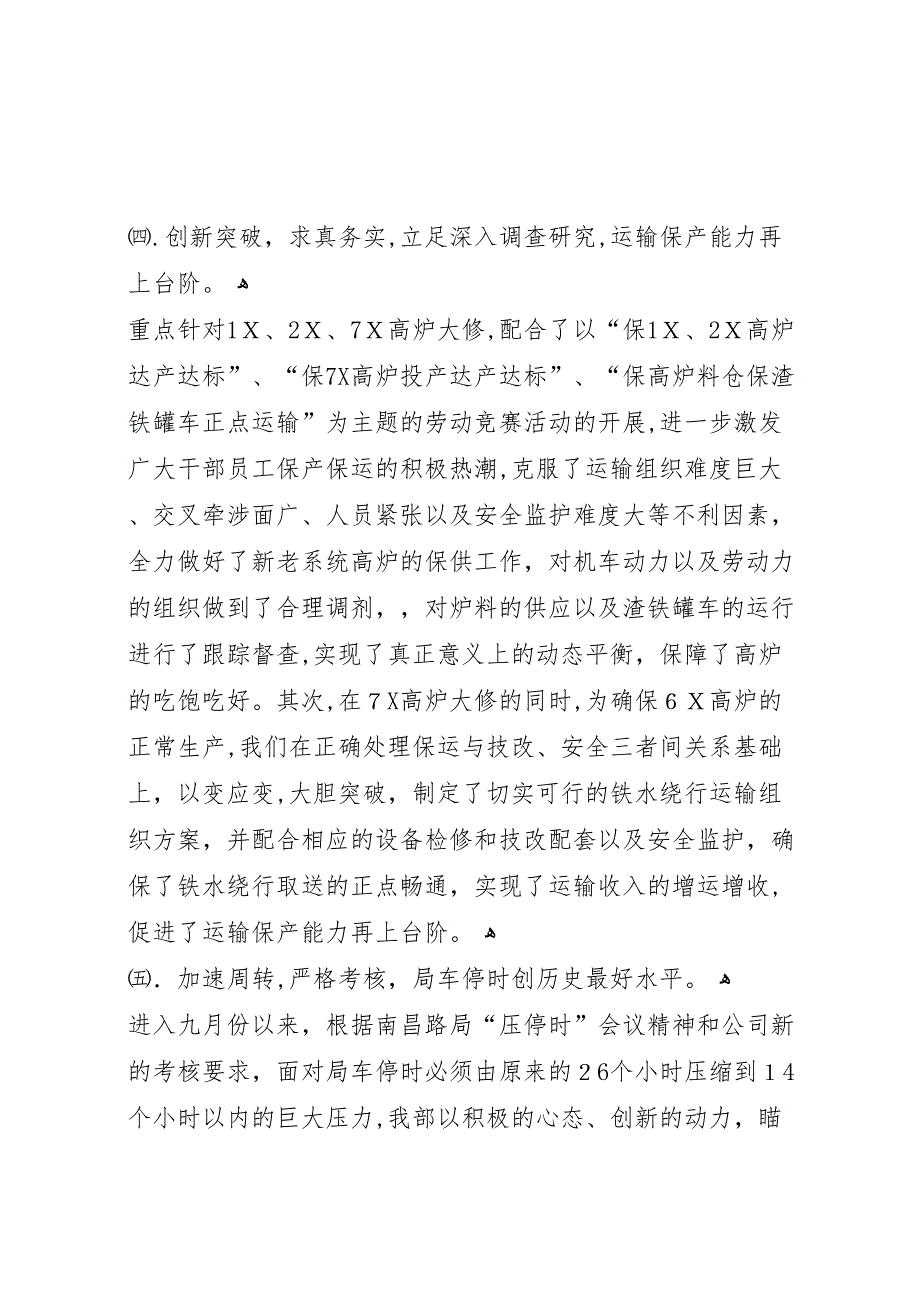 ㈣.创新突破，求真务实,立足深入调查研究,运输保产能力再
上台阶。 ﻫ
重点针对1Ｘ、2Ｘ、7Ｘ高炉大修,配合了以“保1Ｘ、2Ｘ高炉
达产达标”、“保7X高炉投产达产达标”、“保高炉料仓保渣
铁罐车正点运输”为主题的劳动竞赛活动的开展,进一步激发
广大干部员工保产保运的积极热潮,克服了运输组织难度巨大
、交叉牵涉面广、人员紧张以及安全监护难度大等不利因素，
全力做好了新老系统高炉的保供工作，对机车动力以及劳动力
的组织做到了合理调剂，，对炉料的供应以及渣铁罐车的运行
进行了跟踪督查,实现了真正意义上的动态平衡，保障了高炉
的吃饱吃好。其次,在７X高炉大修的同时,为确保６Ｘ高炉的
正常生产,我们在正确处理保运与技改、安全三者间关系基础
上，以变应变,大胆突破，制定了切实可行的铁水绕行运输组
织方案，并配合相应的设备检修和技改配套以及安全监护，确
保了铁水绕行取送的正点畅通，实现了运输收入的增运增收,
促进了运输保产能力再上台阶。 ﻫ
㈤．加速周转,严格考核，局车停时创历史最好水平。 ﻫ
进入九月份以来，根据南昌路局“压停时”会议精神和公司新
的考核要求，面对局车停时必须由原来的２6个小时压缩到１4
个小时以内的巨大压力,我部以积极的心态、创新的动力，瞄